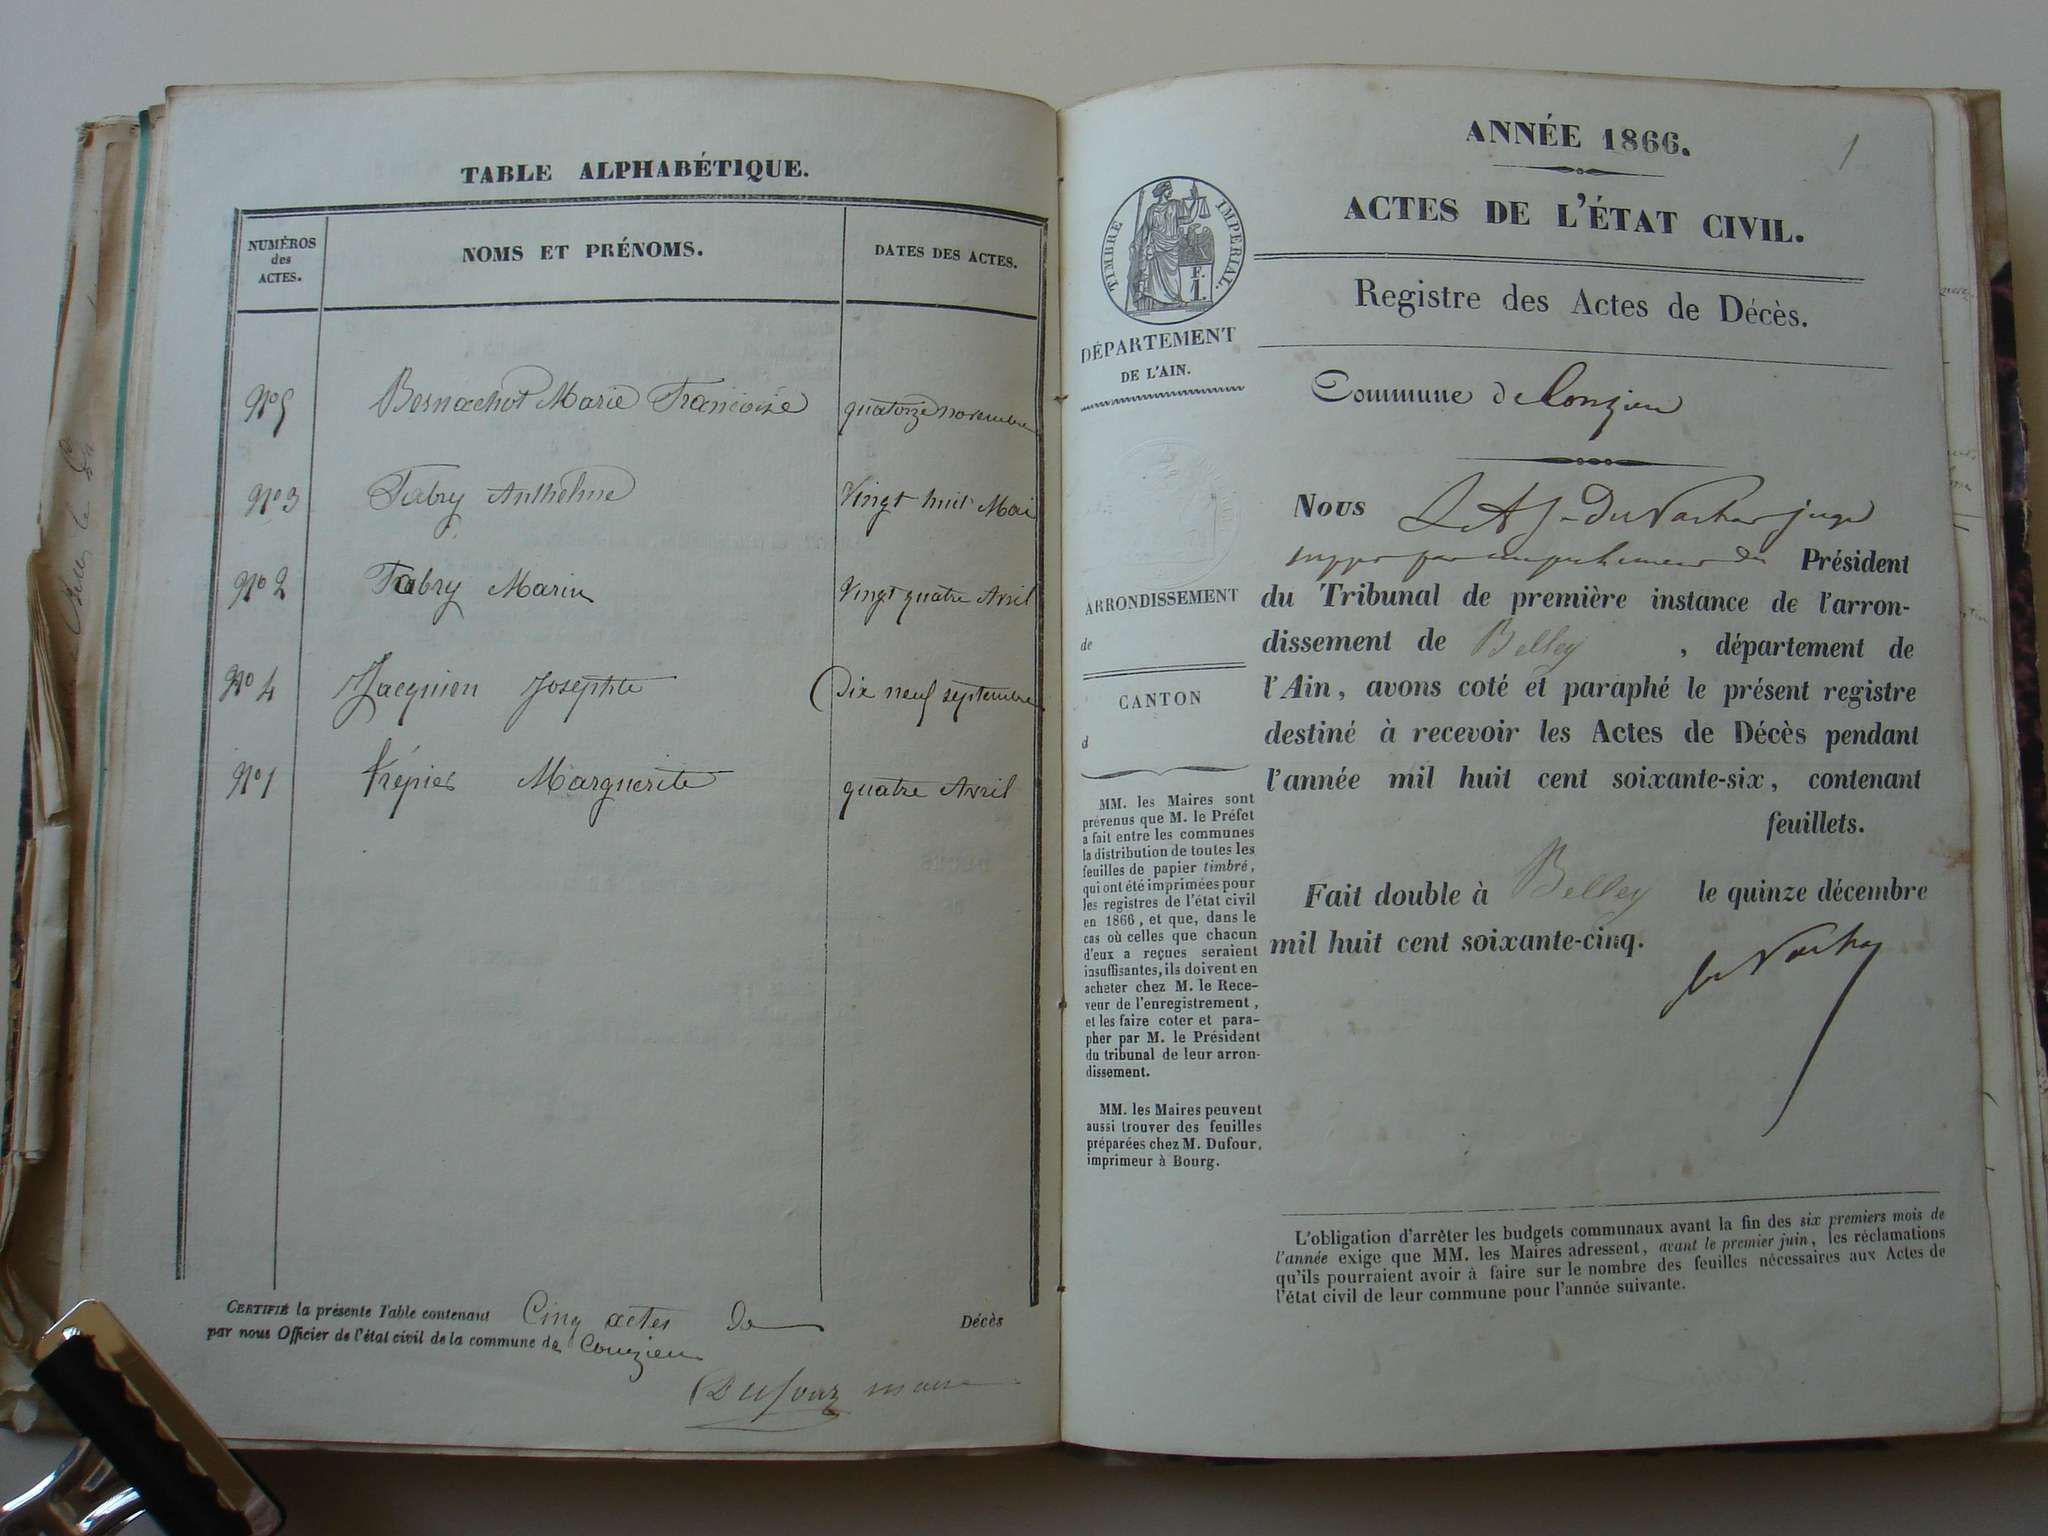 TABLE ALPHABÉTIQUE.
NUMÉROS
des
ACTES.
NOMS ET PRÉNOMS.
DATES DES ACTES.
No 5 Bernachot Marie Francoise quatorze novembre
No 3 Fabry Anthelme Vingt huit Mai
No 2 Fabry Marin Vingt quatre Avril
No 4 Jacquien Josephte Dix neuf septembre
No 1 Trépier Marguerite quatre Avril
CERTIFIÉ la présente Table contenant Cinq actes de Décès
par nous Officier de l'état civil de la commune de Conzieu
Dufour maire
1
ANNÉE 1866.
ACTES DE L'ÉTAT CIVIL.
TIMBRE IMPÉRIAL.
Registre des Actes de Décès.
DÉPARTEMENT
DE L'AIN.
Commune de Conzieu
ARRONDISSEMENT
de
CANTON
d
MM. les Maires sont
prévenus que M. le Préfet
a fait entre les communes
la distribution de toutes les
feuilles de papier timbré,
qui ont été imprimées pour
les registres de l'état civil
en 1866, et que, dans le
cas où celles que chacun
d'eux a reçues seraient
insuffisantes, ils doivent en
acheter chez M. le Rece-
veur de l'enregistrement,
et les faire coter et para-
pher par M. le Président
du tribunal de leur arron-
dissement.
MM. les Maires peuvent
aussi trouver des feuilles
préparées chez M. Dufour,
imprimeur à Bourg.
Nous juge
par empêchement du Président
du Tribunal de première instance de l'arron-
dissement de Belley , département de
l'Ain, avons coté et paraphé le présent registre
destiné à recevoir les Actes de Décès pendant
l'année mil huit cent soixante-six, contenant
feuillets.
Fait double à Belley le quinze décembre
mil huit cent soixante-cinq.
L'obligation d'arrêter les budgets communaux avant la fin des six premiers mois de
l'année exige que MM. les Maires adressent, avant le premier juin, les réclamations
qu'ils pourraient avoir à faire sur le nombre des feuilles nécessaires aux Actes de
l'état civil de leur commune pour l'année suivante.